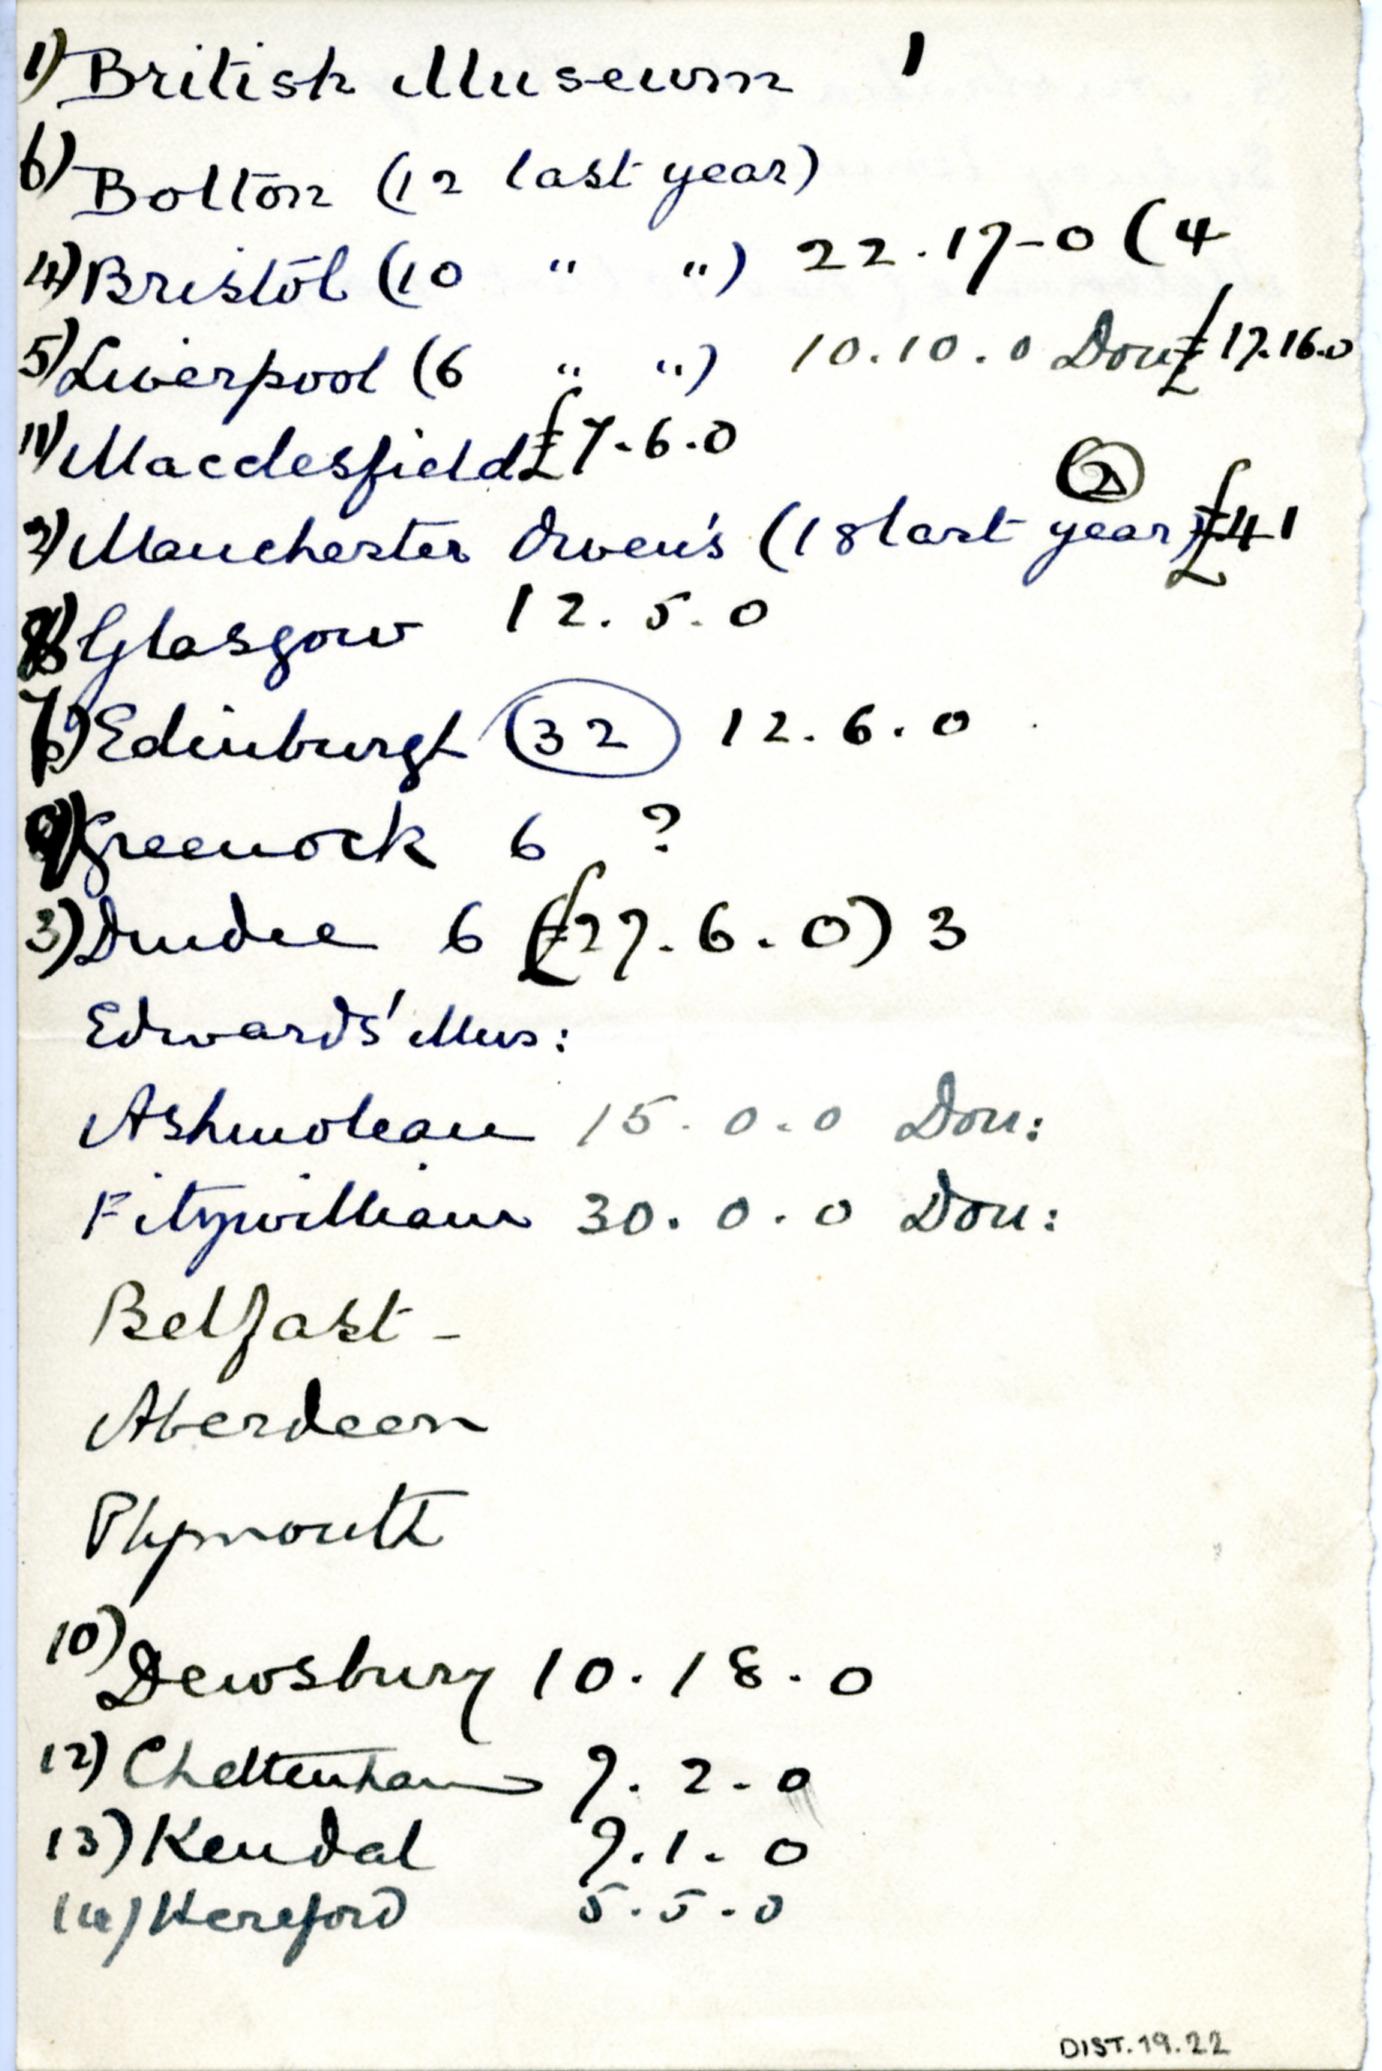 1) British Museum 1
6) Bolton (12 last year)
4) Bristol (10 " ") 22.17-0 (4
5) Liverpool (6 " ") 10.10.0 Don £17.16.0
11) Macclesfield £7.6.0
2) Manchester Owen's (18 last year) £41 (2)
8) Glasgow 12.5.0
7) Edinburgh (32) 12.6.0
9) Greenock 6 ?
3) Dundee 6 (£27.6.0) 3
Edwards' Mus:
Ashmolean 15.0.0 Don:
Fitzwilliam 30.0.0 Don:
Belfast -
Aberdeen
Plymouth
10) Dewsbury 10.18.0
12) Cheltenham 7.2.0
13) Kendal 7.1.0
14) Hereford 5.5.0
DIST.19.22